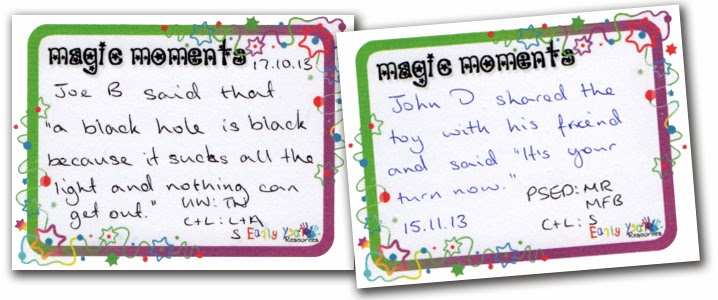 magic moments 17.10.13
Joe B said that
"a black hole is black
because it sucks all the
light and nothing can
get out."
UW: TW
C+L: L+A
S
Early Years
Resources
magic moments
John D shared the
toy with his friend
and said "It's your
turn now."
PSED: MR
MFB
15.11.13
C+L: S
Early Years
Resources